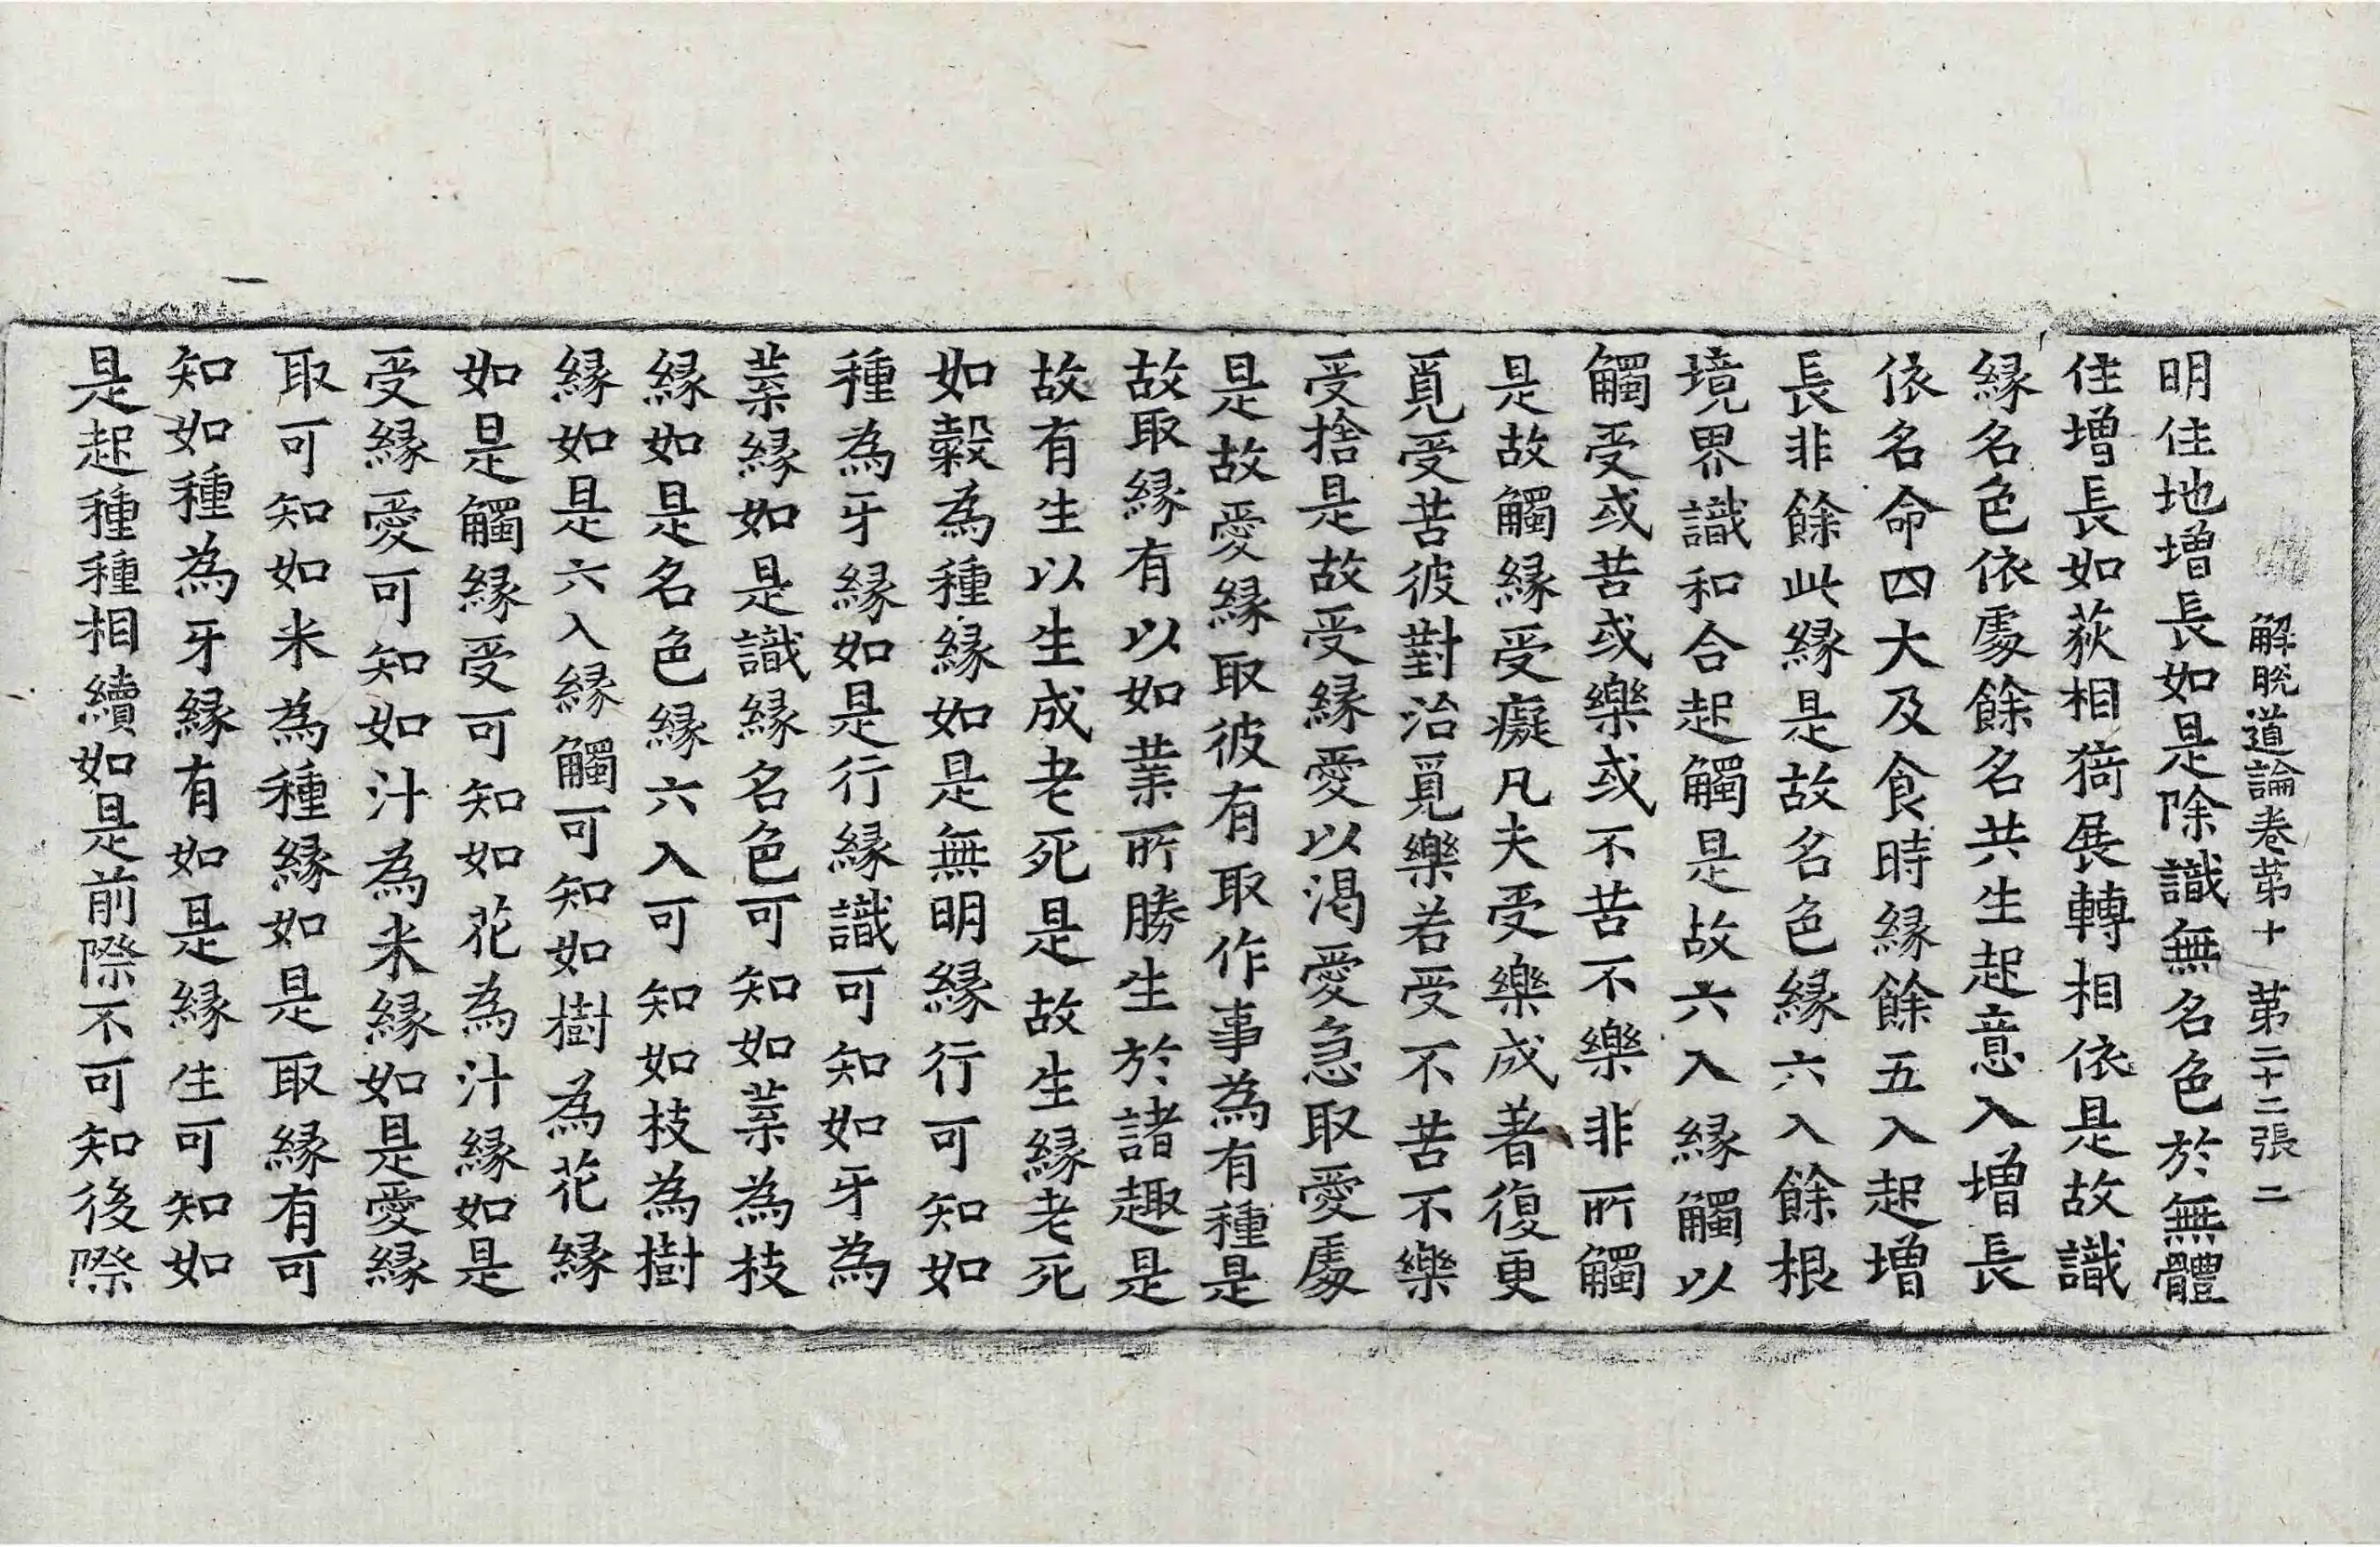 解脫道論卷第十 第二十二張 二
明住地增長如是除識無名色於無體
住增長如荻相猗展轉相依是故識
緣名色依處餘名共生起意入增長
依名命四大及食時緣餘五入起增
長非餘此緣是故名色緣六入餘根
境界識和合起觸是故六入緣觸以
觸受或苦或樂或不苦不樂非所觸
是故觸緣受癡凡夫受樂成著復更
覓受苦彼對治覓樂若受不苦不樂
受捨是故受緣愛以渴愛急取愛處
是故愛緣取彼有取作事為有種是
故取緣有以如業所勝生於諸趣是
故有生以生成老死是故生緣老死
如糓為種緣如是無明緣行可知如
種為牙緣如是行緣識可知如牙為
葉緣如是識緣名色可知如葉為枝
緣如是名色緣六入可知如枝為樹
緣如是六入緣觸可知如樹為花緣
如是觸緣受可知如花為汁緣如是
受緣愛可知如汁為米緣如是愛緣
取可知如米為種緣如是取緣有可
知如種為牙緣有如是緣生可知如
是起種種相續如是前際不可知後際